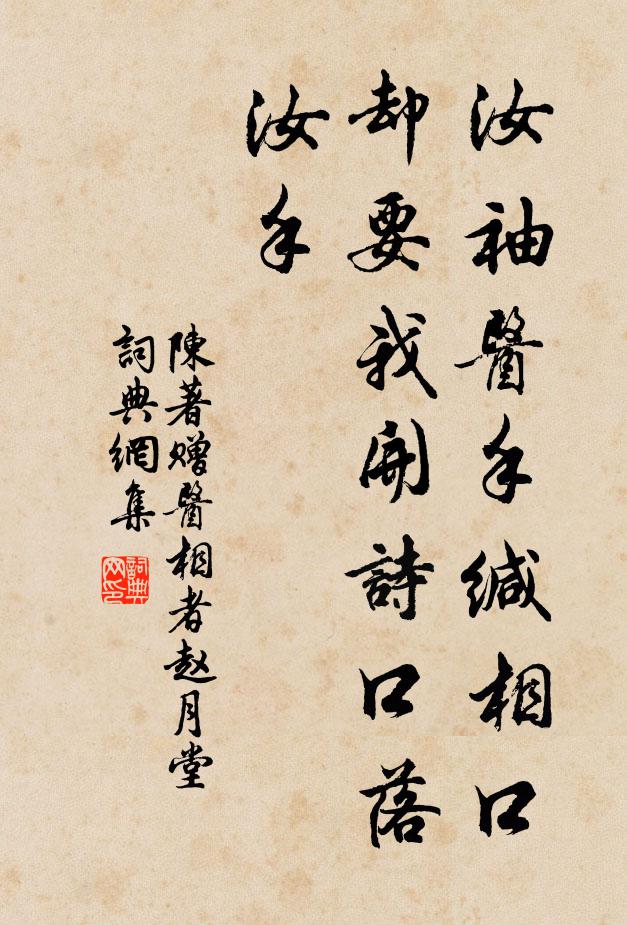 汝袖醫手緘相口
却要我開詩口落
汝手
陳著贈醫相者赵月堂
詞典網集
詞典网印